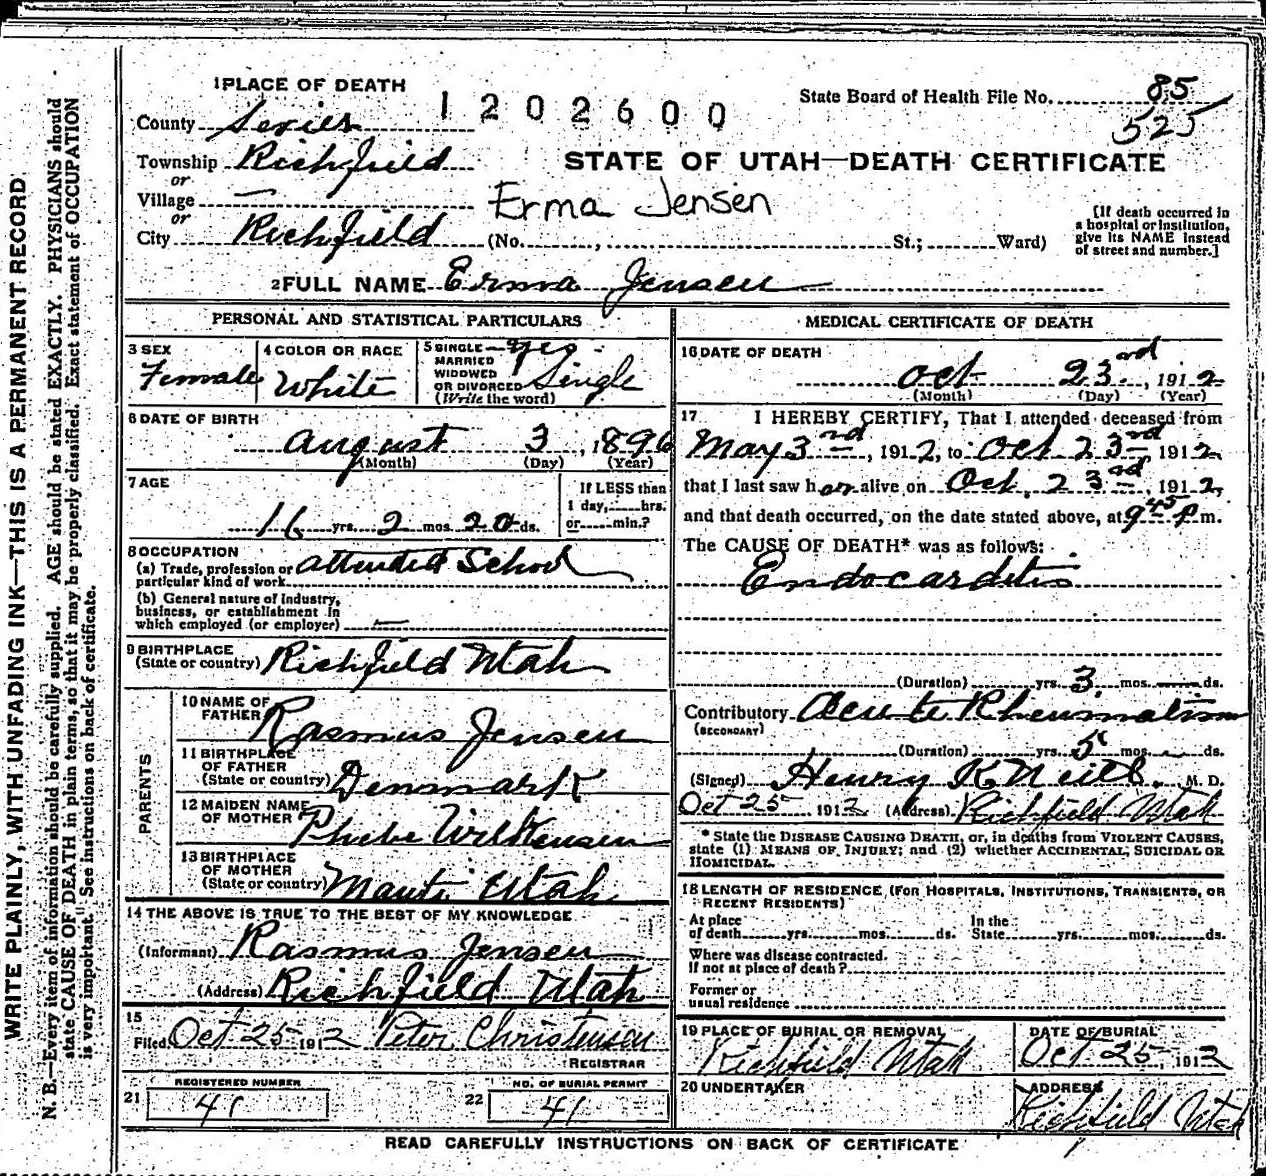 WRITE PLAINLY, WITH UNFADING INK—THIS IS A PERMANENT RECORD
N. B.—Every item of information should be carefully supplied. AGE should be stated EXACTLY. PHYSICIANS should
state CAUSE OF DEATH in plain terms, so that it may be properly classified. Exact statement of OCCUPATION
is very important. See instructions on back of certificate.
1 PLACE OF DEATH
1202600
State Board of Health File No. 85
525
County Sevier
Township Richfield
or
STATE OF UTAH—DEATH CERTIFICATE
Village —
or
Erma Jensen
City Richfield (No. , St.; Ward)
[If death occurred in
a hospital or institution,
give its NAME instead
of street and number.]
2 FULL NAME Erma Jensen
PERSONAL AND STATISTICAL PARTICULARS
3 SEX
Female
4 COLOR OR RACE
White
5 SINGLE yes
MARRIED
WIDOWED
OR DIVORCED Single
(Write the word)
6 DATE OF BIRTH
August 3, 1896
(Month) (Day) (Year)
7 AGE
16 yrs. 2 mos. 20 ds.
If LESS than
1 day, hrs.
or min.?
8 OCCUPATION
(a) Trade, profession or
particular kind of work attended School
(b) General nature of industry,
business, or establishment in
which employed (or employer) —
9 BIRTHPLACE
(State or country) Richfield Utah
PARENTS
10 NAME OF
FATHER Rasmus Jensen
11 BIRTHPLACE
OF FATHER
(State or country) Denmark
12 MAIDEN NAME
OF MOTHER Phebe Wilkensen
13 BIRTHPLACE
OF MOTHER
(State or country) Manti Utah
14 THE ABOVE IS TRUE TO THE BEST OF MY KNOWLEDGE
(Informant) Rasmus Jensen
(Address) Richfield Utah
15
Filed Oct 25 1912 Peter Christensen
REGISTRAR
21
REGISTERED NUMBER
41
22
NO. OF BURIAL PERMIT
41
MEDICAL CERTIFICATE OF DEATH
16 DATE OF DEATH
Oct 23rd, 1912
(Month) (Day) (Year)
17 I HEREBY CERTIFY, That I attended deceased from
May 3rd, 1912, to Oct 23rd 1912,
that I last saw her alive on Oct. 23rd, 1912,
and that death occurred, on the date stated above, at 9 45 P. m.
The CAUSE OF DEATH* was as follows:
Endocarditis
(Duration) yrs. 3 mos. — ds.
Contributory Acute Rheumatism
(SECONDARY)
(Duration) yrs. 5 mos. ds.
(Signed) Henry K Neill. M. D.
Oct 25, 1912 (Address) Richfield Utah
* State the DISEASE CAUSING DEATH, or, in deaths from VIOLENT CAUSES,
state (1) MEANS OF INJURY; and (2) whether ACCIDENTAL, SUICIDAL OR
HOMICIDAL.
18 LENGTH OF RESIDENCE (FOR HOSPITALS, INSTITUTIONS, TRANSIENTS, OR
RECENT RESIDENTS)
At place
of death yrs. mos. ds.
In the
State yrs. mos. ds.
Where was disease contracted.
If not at place of death?
Former or
usual residence
19 PLACE OF BURIAL OR REMOVAL
Richfield Utah
DATE OF BURIAL
Oct 25, 1912
20 UNDERTAKER
ADDRESS
Richfield Utah
READ CAREFULLY INSTRUCTIONS ON BACK OF CERTIFICATE